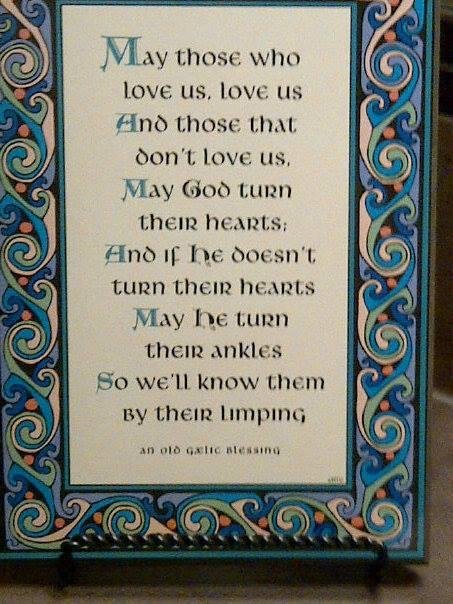 May those who
love us, love us
And those that
don't love us,
May God turn
their hearts;
And if He doesn't
turn their hearts
May He turn
their ankles
So we'll know them
by their limping
an old gælic blessing